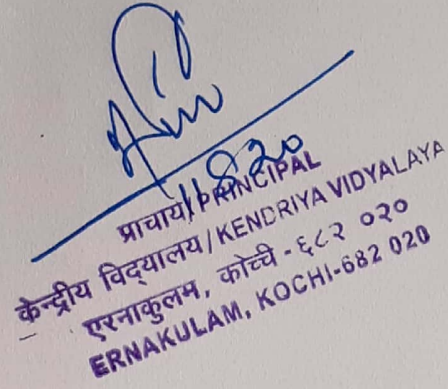 11.8.20
प्राचार्य/PRINCIPAL
केन्द्रीय विद्यालय/KENDRIYA VIDYALAYA
एरनाकुलम, कोच्ची - ६८२ ०२०
ERNAKULAM, KOCHI-682 020